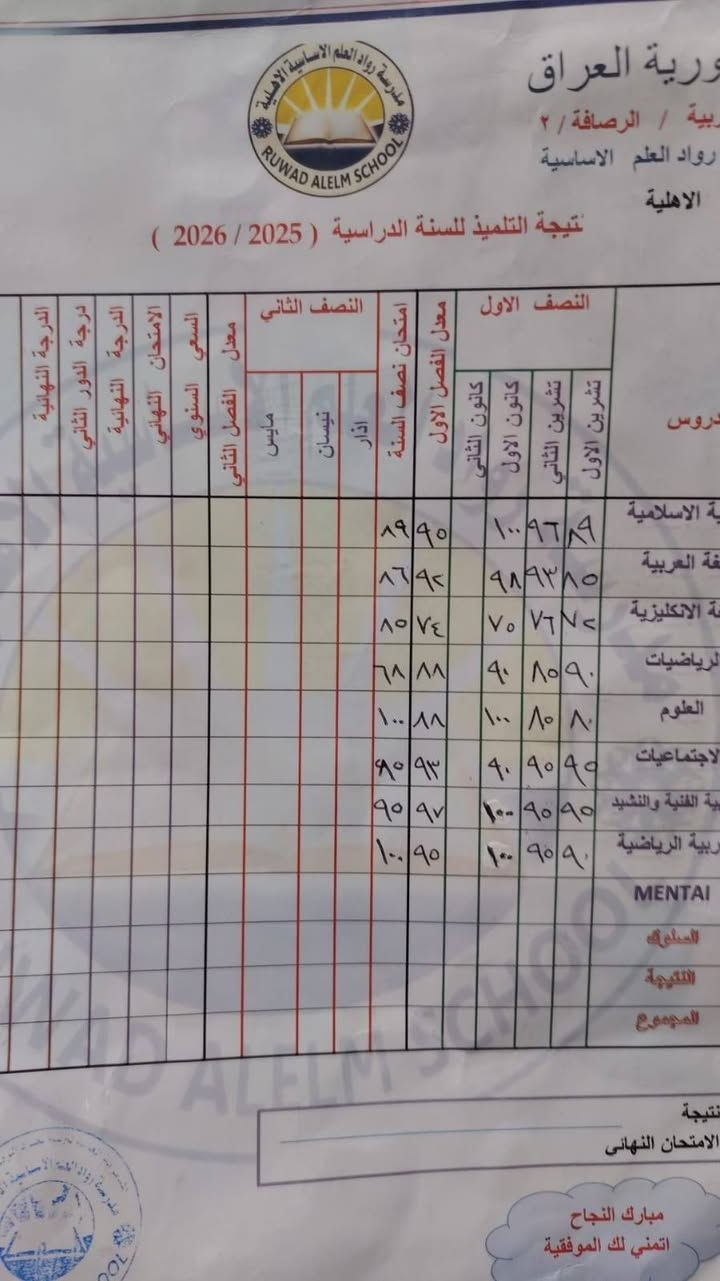 ورية العراق
بية / الرصافة / ٢
رواد العلم الاساسية
الاهلية
مدرسة رواد العلم الاساسية الاهلية
RUWAD ALELM SCHOOL
نتيجة التلميذ للسنة الدراسية ( 2025 / 2026 )
دروس
النصف الاول
تشرين الاول
تشرين الثاني
كانون الاول
كانون الثاني
معدل الفصل الاول
امتحان نصف السنة
النصف الثاني
اذار
نيسان
مايس
معدل الفصل الثاني
السعي السنوي
الامتحان النهائي
الدرجة النهائية
درجة الدور الثاني
الدرجة النهائية
ية الاسلامية ٨٩ ٩٦ ١٠٠ ٩٥ ٨٩
غة العربية ٨٥ ٩٣ ٩٨ ٩٢ ٨٦
ة الانكليزية ٧٢ ٧٦ ٧٥ ٧٤ ٨٥
لرياضيات ٩٠ ٨٥ ٩٠ ٨٨ ٦٨
العلوم ٨٠ ٨٥ ١٠٠ ٨٨ ١٠٠
لاجتماعيات ٩٥ ٩٥ ٩٠ ٩٣
ية الفنية والنشيد ٩٥ ٩٥ ١٠٠ ٩٧ ٩٥
ربية الرياضية ٩٠ ٩٥ ١٠٠ ٩٥ ١٠٠
MENTAl
السلوك
النتيجة
المجموع
نتيجة
الامتحان النهائي
مبارك النجاح
اتمنى لك الموفقية